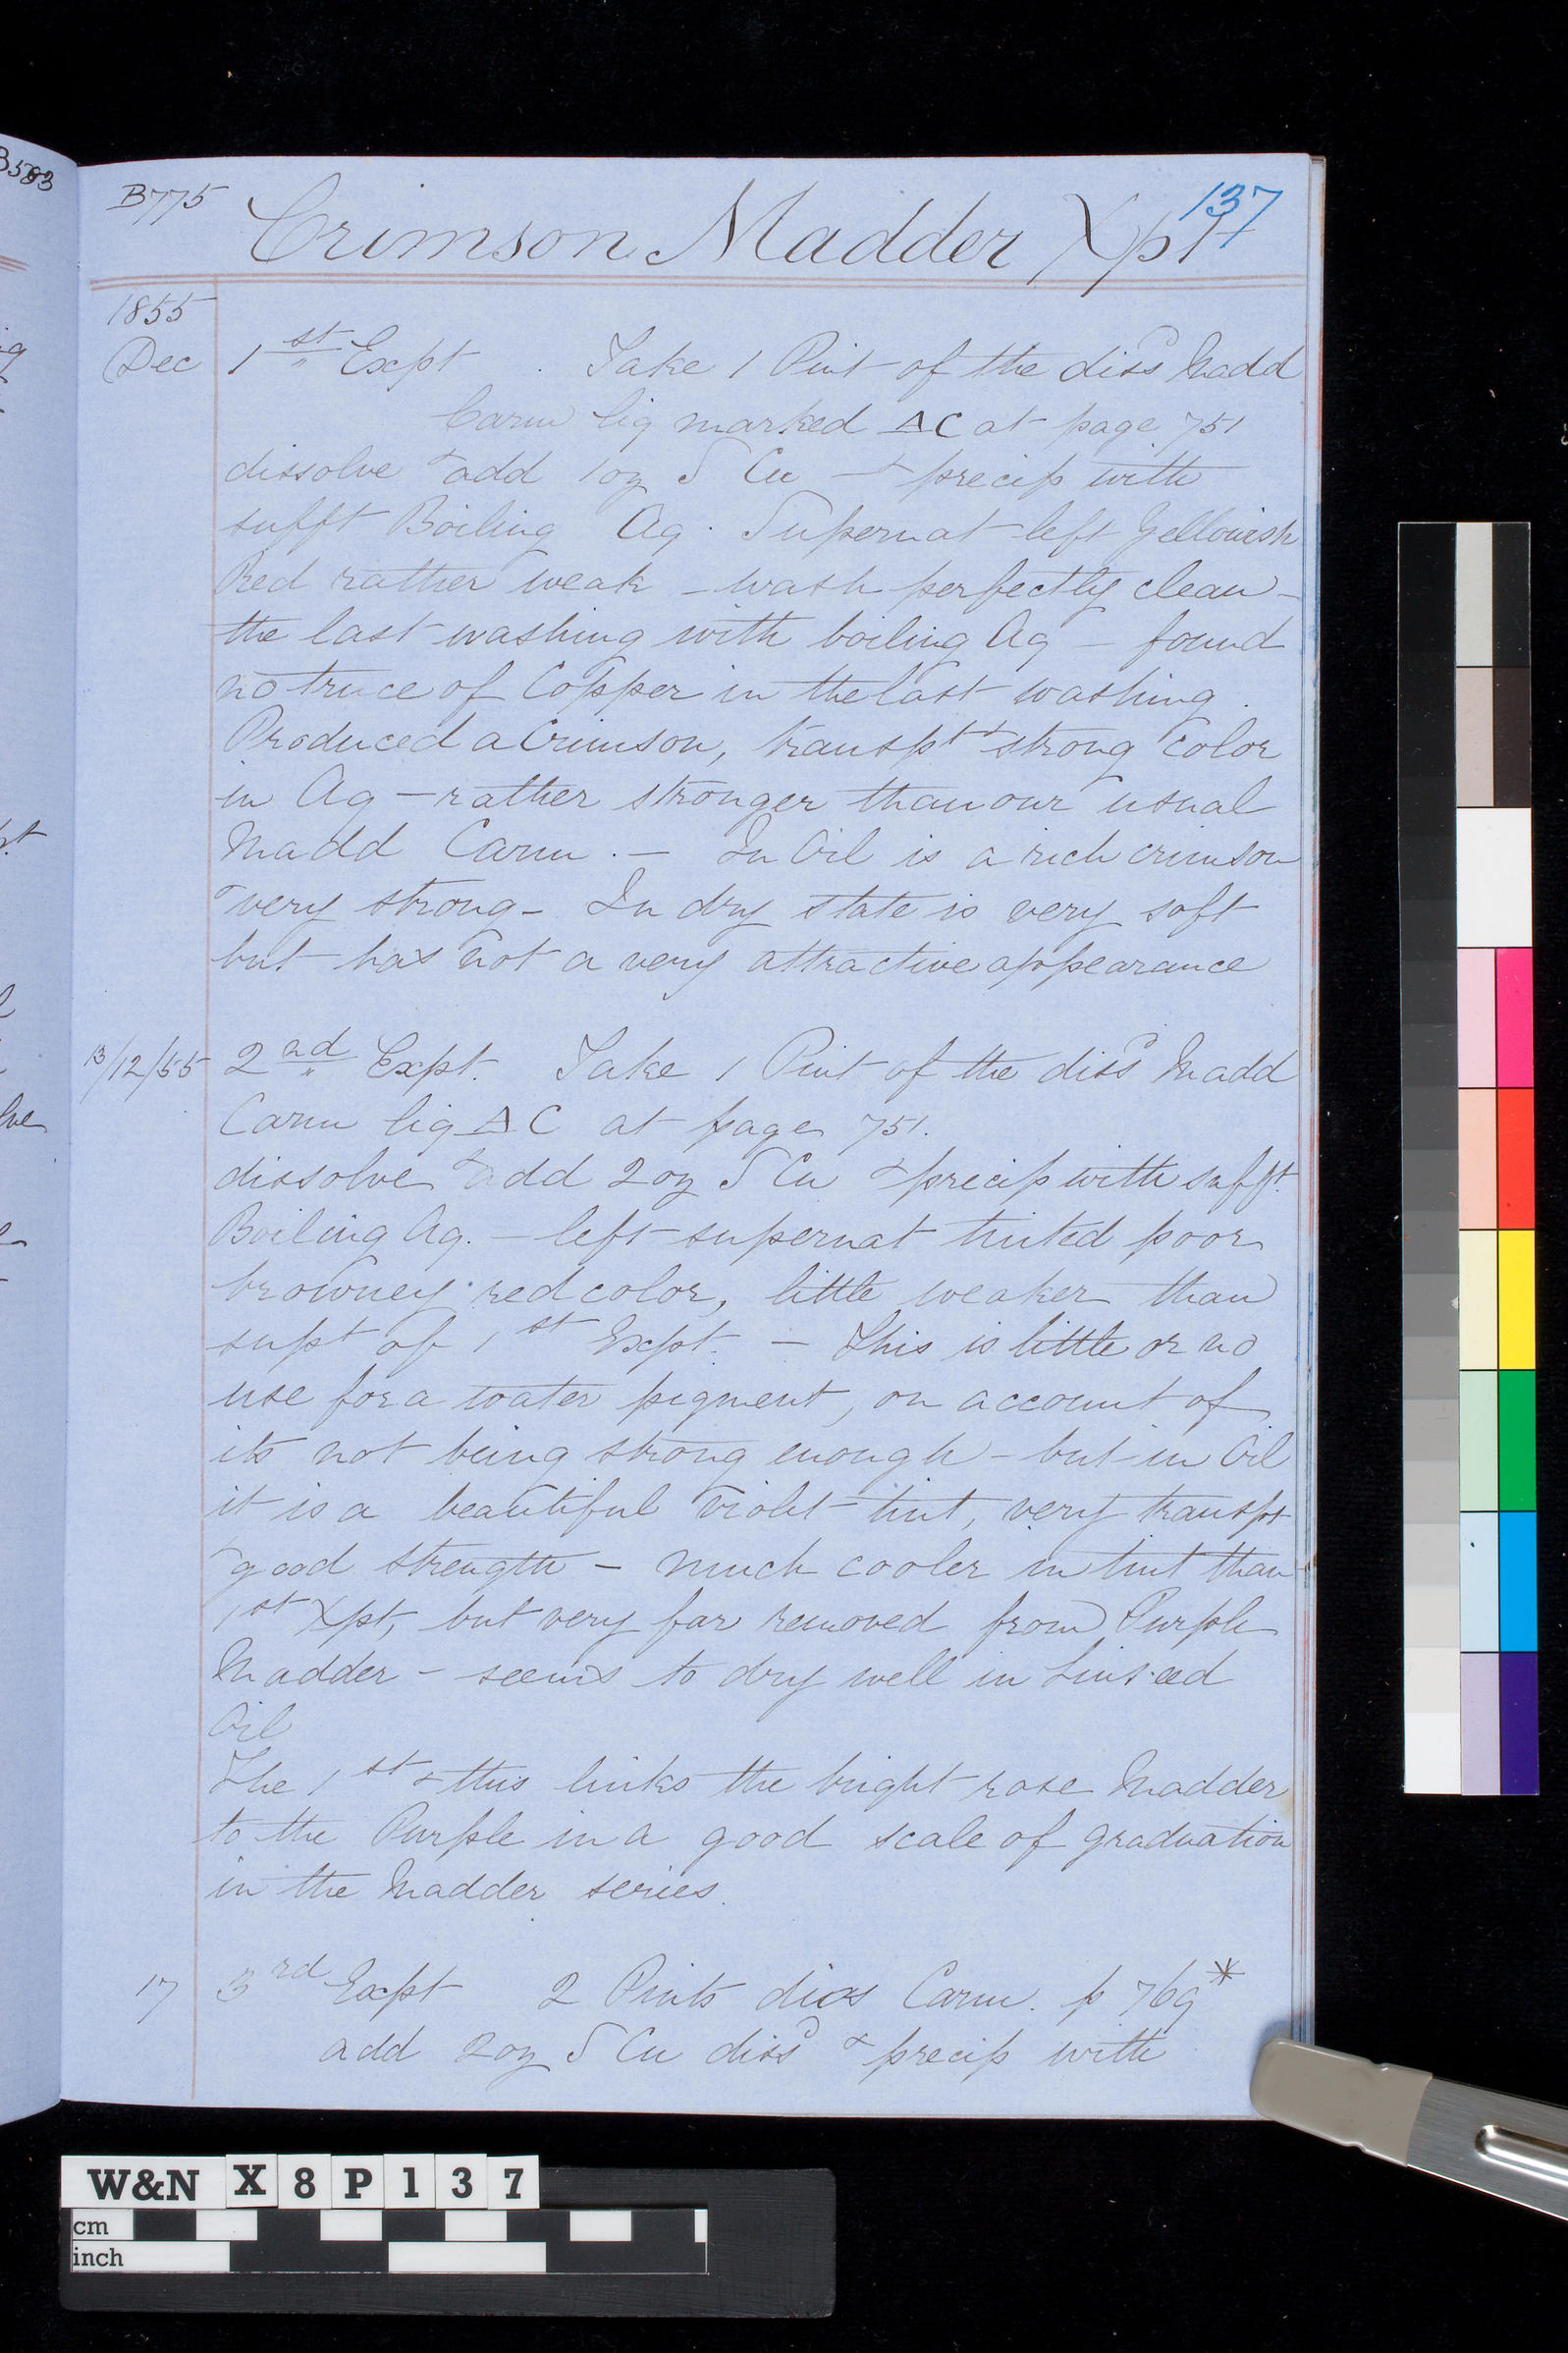 B583
B775
137
Crimson Madder Xpt
1855
Dec 1st Expt . Take 1 Pint of the dissd Madd
Carm liq marked ΔC at page 751
dissolve & add 1 oz S Cu - & precip with
sufft Boiling Aq. Supernat left Yellowish
Red rather weak - wash perfectly clean -
the last washing with boiling Aq - found
no truce of Copper in the last washing.
Produced a Crimson, transpt & strong color
in Aq - rather stronger than our usual
Madd Carm. - In Oil is a rich crimson
& very strong - In dry state is very soft
but has not a very attractive appearance
13/12/55 2nd Expt. Take 1 Pint of the dissd Madd
Carm liq ΔC at page 751.
dissolve & add 2 oz S Cu & precip with sufft.
Boiling Aq. - left supernat tinted poor
browney red color, little weaker than
supt of 1st Expt. - This is little or no
use for a water pigment, on account of
its not being strong enough - but in Oil
it is a beautiful violet tint, very transpt
& good strength - much cooler in tint than
1st Xpt, but very far removed from Purple
Madder - seems to dry well in Linseed
Oil
The 1st & this links the bright rose Madder
to the Purple in a good scale of graduation
in the Madder series.
17 3rd Expt 2 Pints diss Carm. p 769*
add 2 oz S Cu dissd & precip with
W&N X 8 P 1 3 7
cm
inch